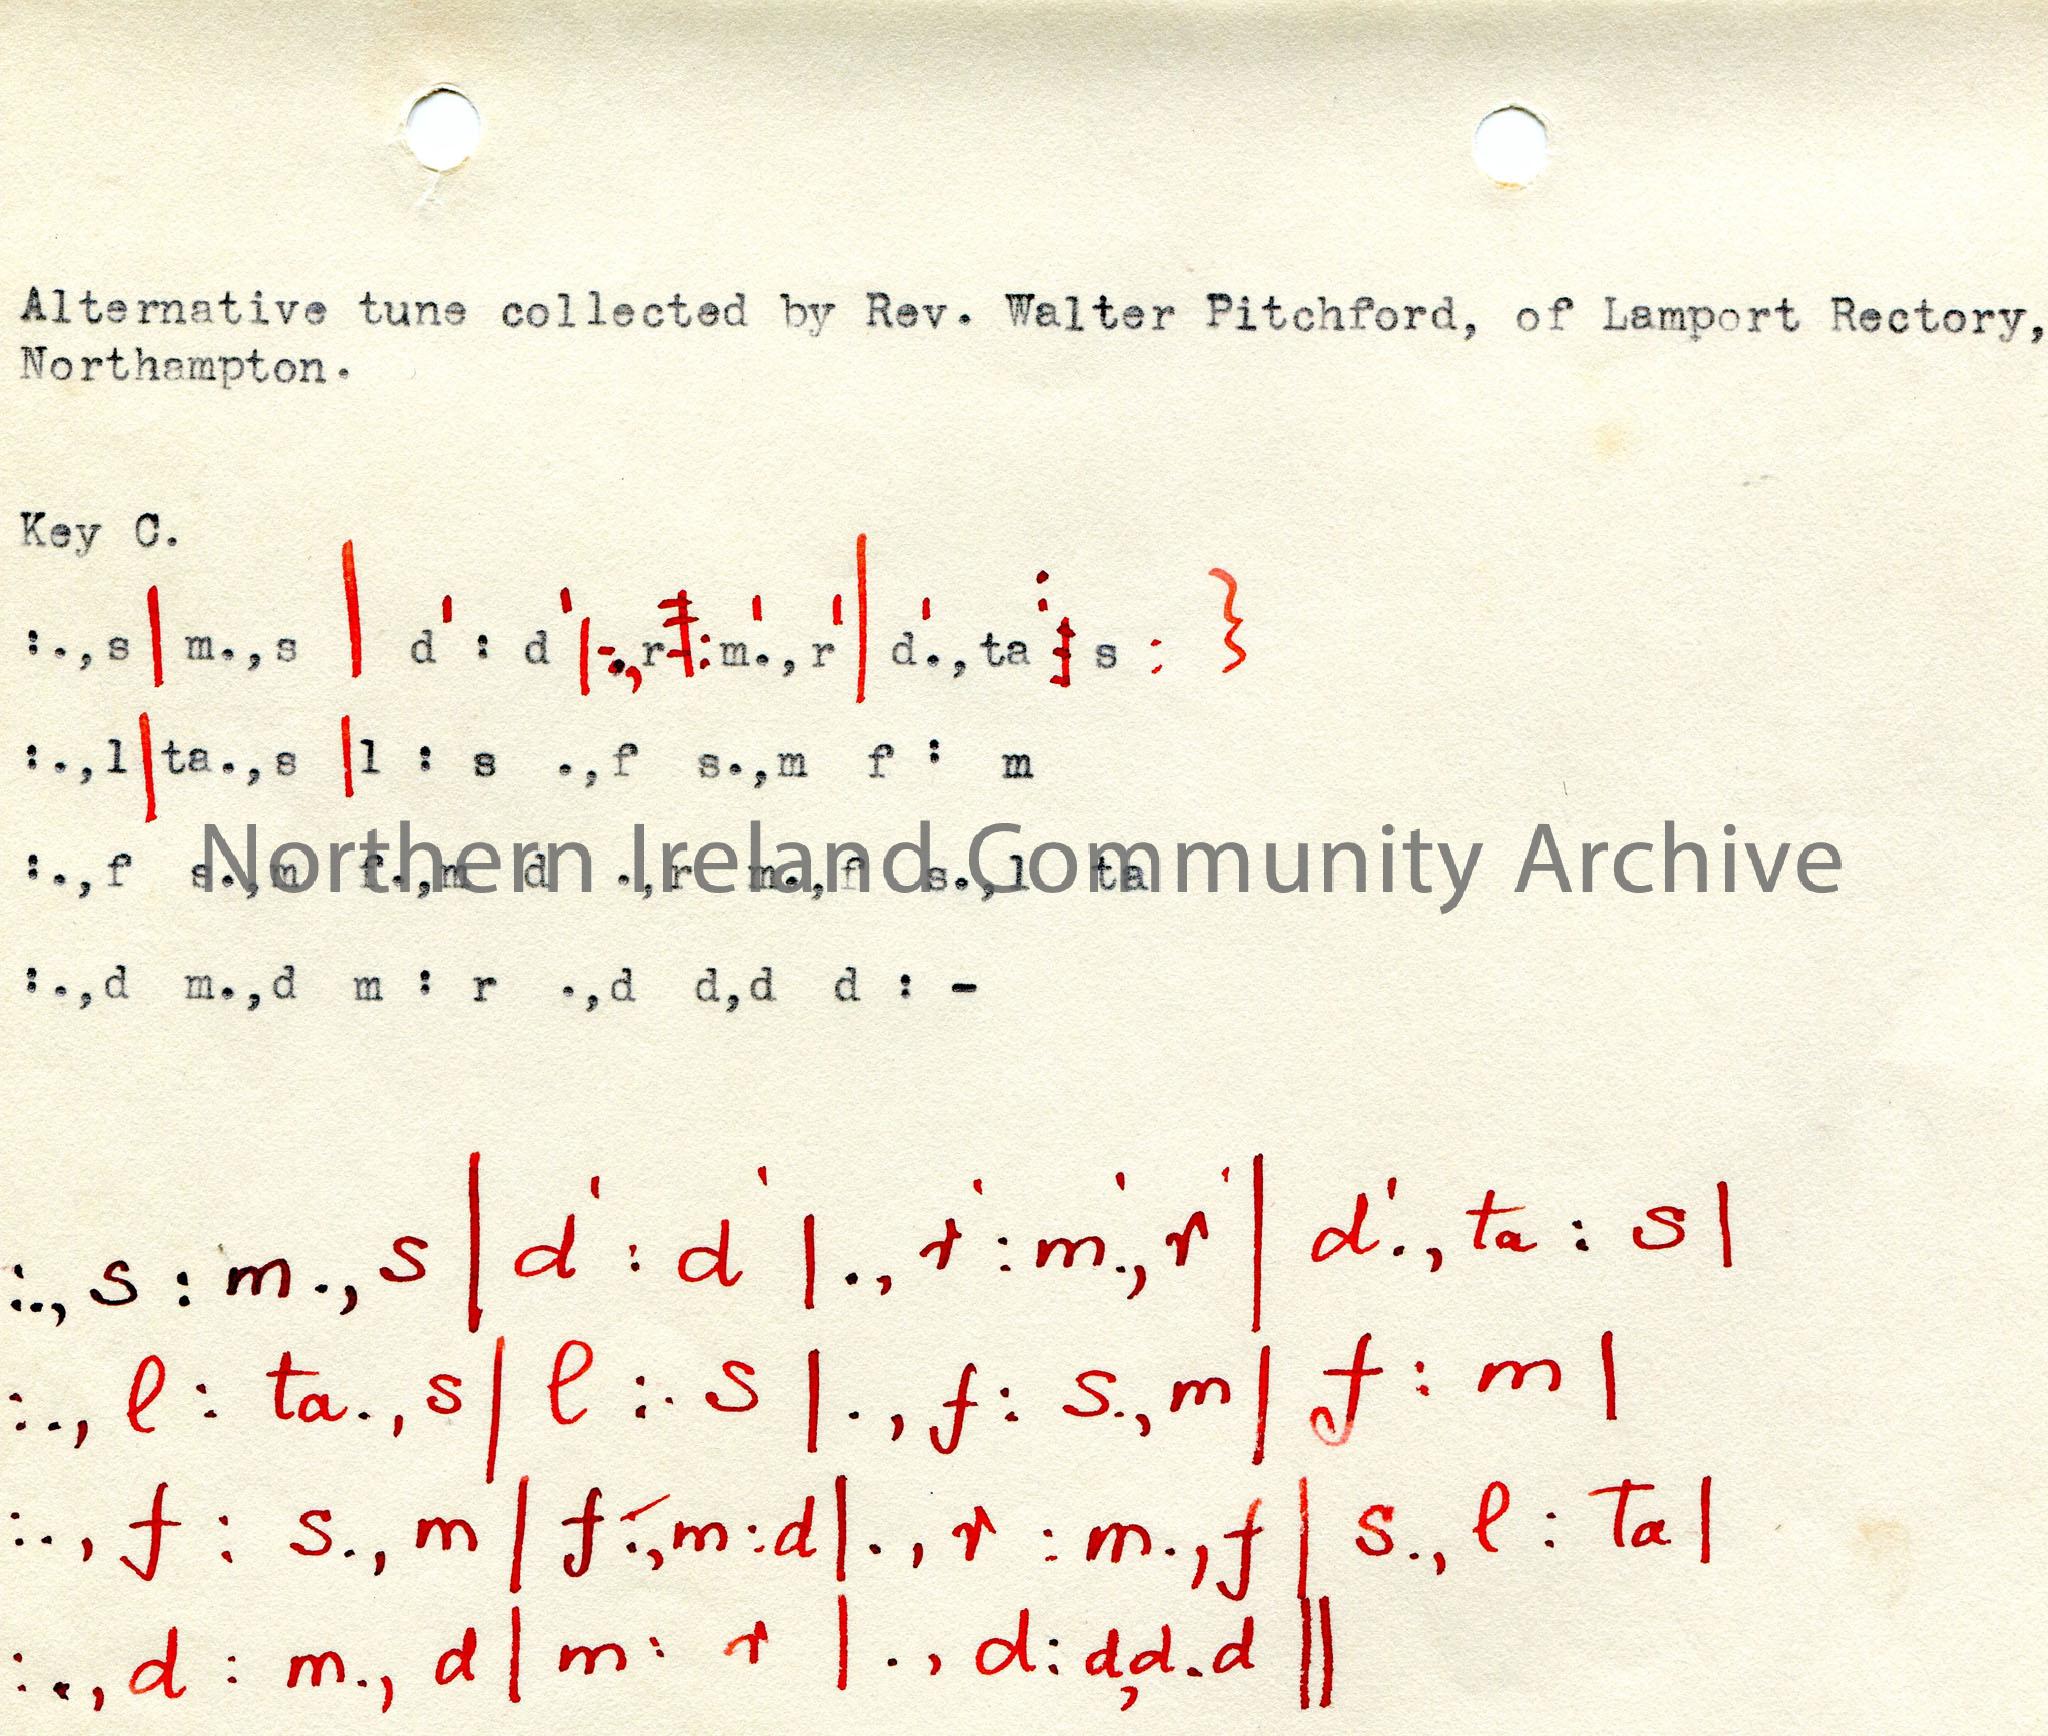 Alternative tune collected by Rev. Walter Pitchford, of Lamport Rectory,
Northampton.
Key C.
:.,s | m.,s | d' : d' | -.,r' : m'.,r' | d'.,ta : s : }
:.,l | ta.,s | l : s .,f s.,m f : m
:.,f s.,m f.,m d .,r m.,f s.,l ta
Northern Ireland Community Archive
:.,d m.,d m : r .,d d,d d : -
:., s : m., s | d' : d' | ., r' : m'., r' | d'., ta : s |
:., l : ta., s | l :. s | ., f : s., m | f : m |
:., f : s., m | f., m : d | ., r : m., f | s., l : ta |
:., d : m., d | m : r | ., d : d,d.d ||